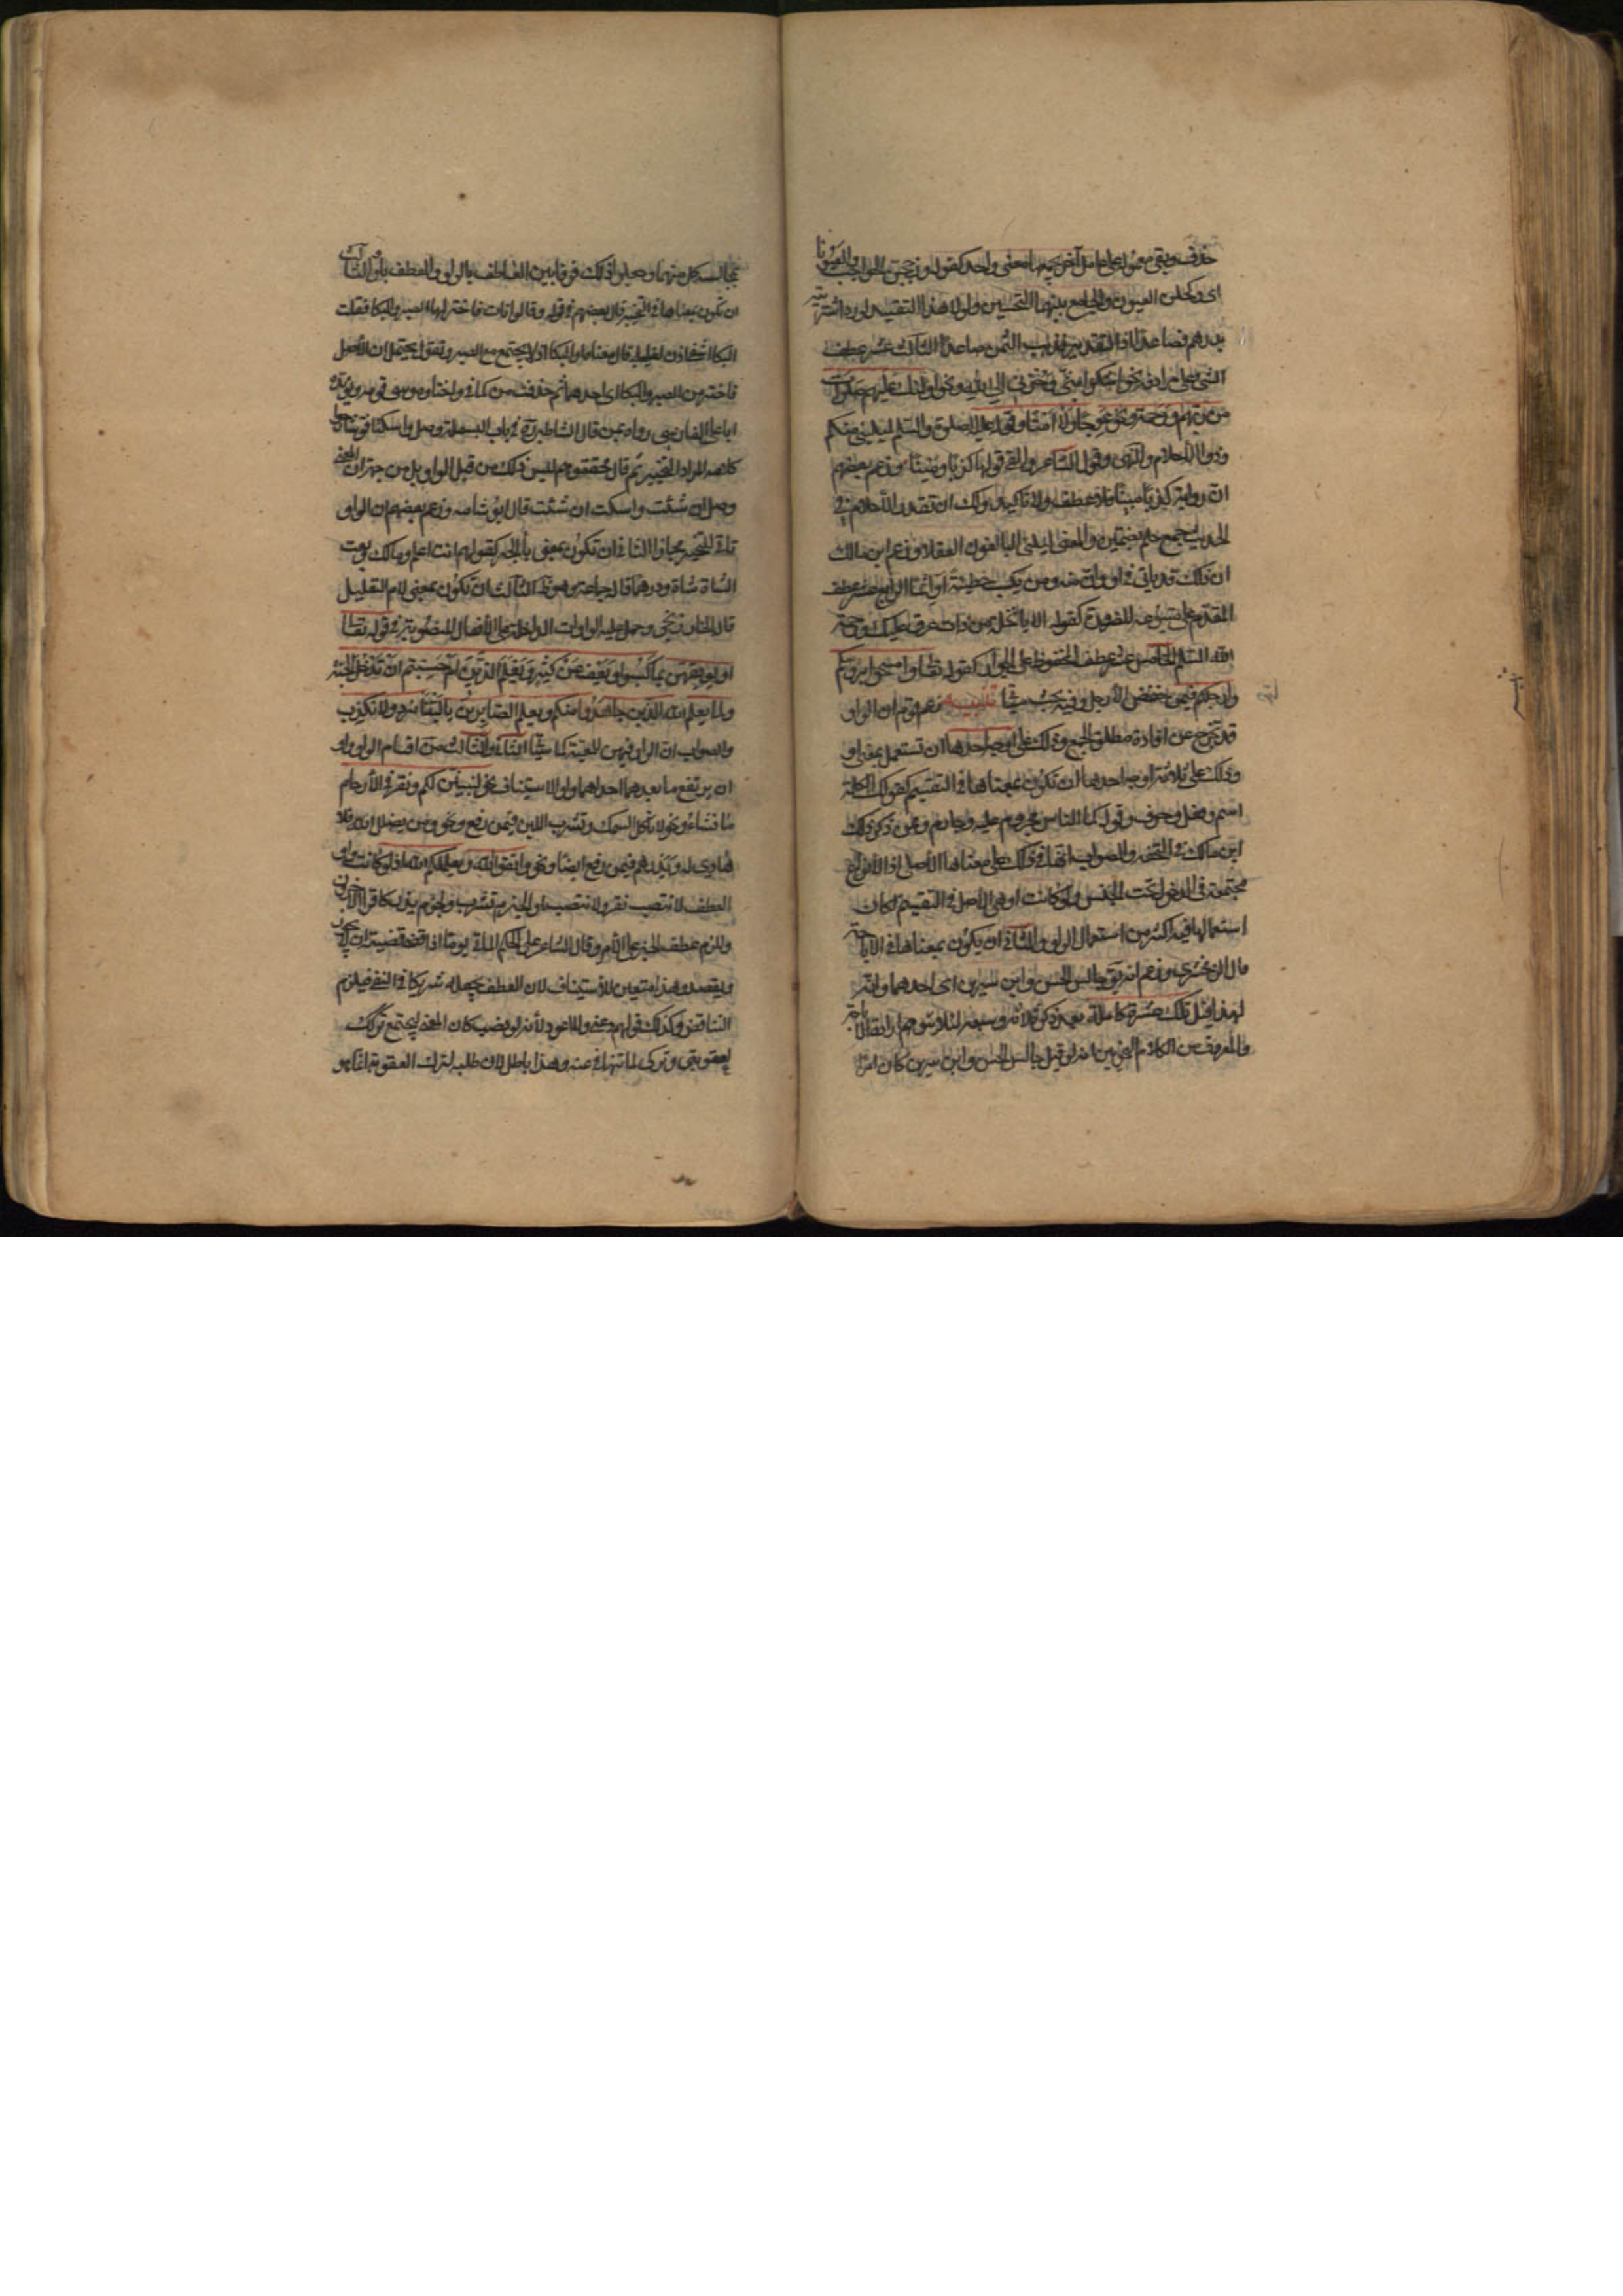 حذف وبقي معموله على عامل آخر يجمعهما معنى واحد كقوله وزججن الحواجب والعيونا
اى وكحلن العيون والجامع بينهما التحسين ولولا هذا التقييد لورد اشتريته
بدرهم فصاعدا اذ التقدير فذهب الثمن صاعدا الثالث عشر عطف
الشي على مرادفه نحو انما اشكو بثي وحزني الى الله ونحو اولئك عليهم صلوات
من ربهم ورحمة ونحو عوجا ولا امتا وقوله عليه الصلوة والسلم ليليني منكم
ذووا الاحلام والنهى وقول الشاعر والفى قولها كذبا ومينا وزعم بعضهم
ان الرواية كذبا مبينا فلا عطف ولا تاكيد ولك ان تقدر الاحلام في
الحديث جمع حلم بضمتين والمعنى ليليني البالغون العقلاء وزعم ابن مالك
ان ذلك قد ياتي في او وان منه ومن يكسب خطيئة او اثما الرابع عشر عطف
المقدم على متبوعه للضرورة كقوله الا يا نخلة من ذات عرق عليك ورحمة
الله السلم الخامس عشر عطف المخفوض على الجوار كقوله تعالى وامسحوا برؤسكم
وارجلكم فيمن خفض الارجل وفيه بحث سيأتي تنبيه زعم قوم ان الواو
قد تخرج عن افادة مطلق الجمع وذلك على اوجه احدها ان تستعمل بمعنى او
وذلك على ثلاثة اوجه احدها ان تكون بمعناها في التقسيم كقولك الكلمة
اسم وفعل وحرف وقوله كما الناس مجروم عليه وجارم وممن ذكر ذلك
ابن مالك في التحفة والصواب انها في ذلك على معناها الاصلي اذ الانواع
مجتمعة في الدخول تحت الجنس ولو كانت او هي الاصل في التقسيم لكان
استعمالها فيه اكثر من استعمال الواو والثاني ان يكون بمعناها في الاباحة
قال الزمخشري وزعم انه يقال جالس الحسن وابن سيرين اى احدهما وانه
لهذا قيل تلك عشرة كاملة بعد ذكر ثلاثة وسبعة لئلا يتوهم ارادة الاباحة
والمعروف من كلام النحويين انه لو قيل جالس الحسن وابن سيرين كان امرا
بمجالسة كل منهما وجعلوا ذلك فرقا بين العطف بالواو والعطف باو والثالث
ان تكون بمعناها في التخيير قال بعضهم في قوله وقالوا نات فاختر لها الصبر والبكا فقلت
البكا اشفى اذن لغليلي قال معناه او البكا اذ لا يجتمع مع الصبر وتقول يحتمل ان الاصل
فاختر من الصبر والبكا اى احدهما ثم حذفت من كما في واختار موسى قومه ويؤيده
ان ابا علي القالي رواه بمن قال الشاطبي في باب البسملة وصل واسكتا فقال شارحوا
كلامه المراد التخيير ثم قال محققوهم ليس ذلك من قبل الواو بل من جهة ان المعنى
وصل ان شئت واسكت ان شئت قال ابو شامه وزعم بعضهم ان الواو
تاتي للتخيير مجازا الثاني ان تكون بمعنى باء الجر كقولهم انت اعلم ومالك وبعت
الشاة شاة ودرهما قاله جماعة وهو ظ الثالث ان تكون بمعنى لام التعليل
قاله الخارزنجي وحمل عليه الواوات الداخلة على الافعال المنصوبة في قوله تعالى
او يوبقهن بما كسبوا ويعف عن كثير ويعلم الذين ام حسبتم ان تدخلوا الجنة
ولما يعلم الله الذين جاهدوا منكم ويعلم الصابرين يا ليتنا نرد ولا نكذب
والصواب ان الواو فيهن للمعية كما سياتي الثاني والثالث من اقسام الواو واو
ان يرتفع ما بعدهما احداهما واو الاستيناف نحو لنبين لكم ونقر في الارحام
ما نشاء ونحو لا تاكل السمك وتشرب اللبن فيمن رفع ونحو من يضلل الله فلا
هادي له ويذرهم فيمن رفع ايضا ونحو واتقوا الله ويعلمكم الله اذ لو كانت واو
العطف لانتصب نقر ولانتصب او انجزم تشرب ولجزم يذر كما قرا الاخرون
وللزم عطف الخبر على الامر وقال الشاعر على الحكم الماتي يوما اذا قضى قضيته ان لا يجور
ويقصد وهذا متعين للاستيناف لان العطف يجعله شريكا في النفي فيلزم
التناقض وكذلك قولهم دعني ولا اعود لانه لو نصب كان المعنى ليجتمع تركك
لعقوبتي وتركى لما تنهاني عنه وهذا باطل لان طلبه لترك العقوبة انما هو